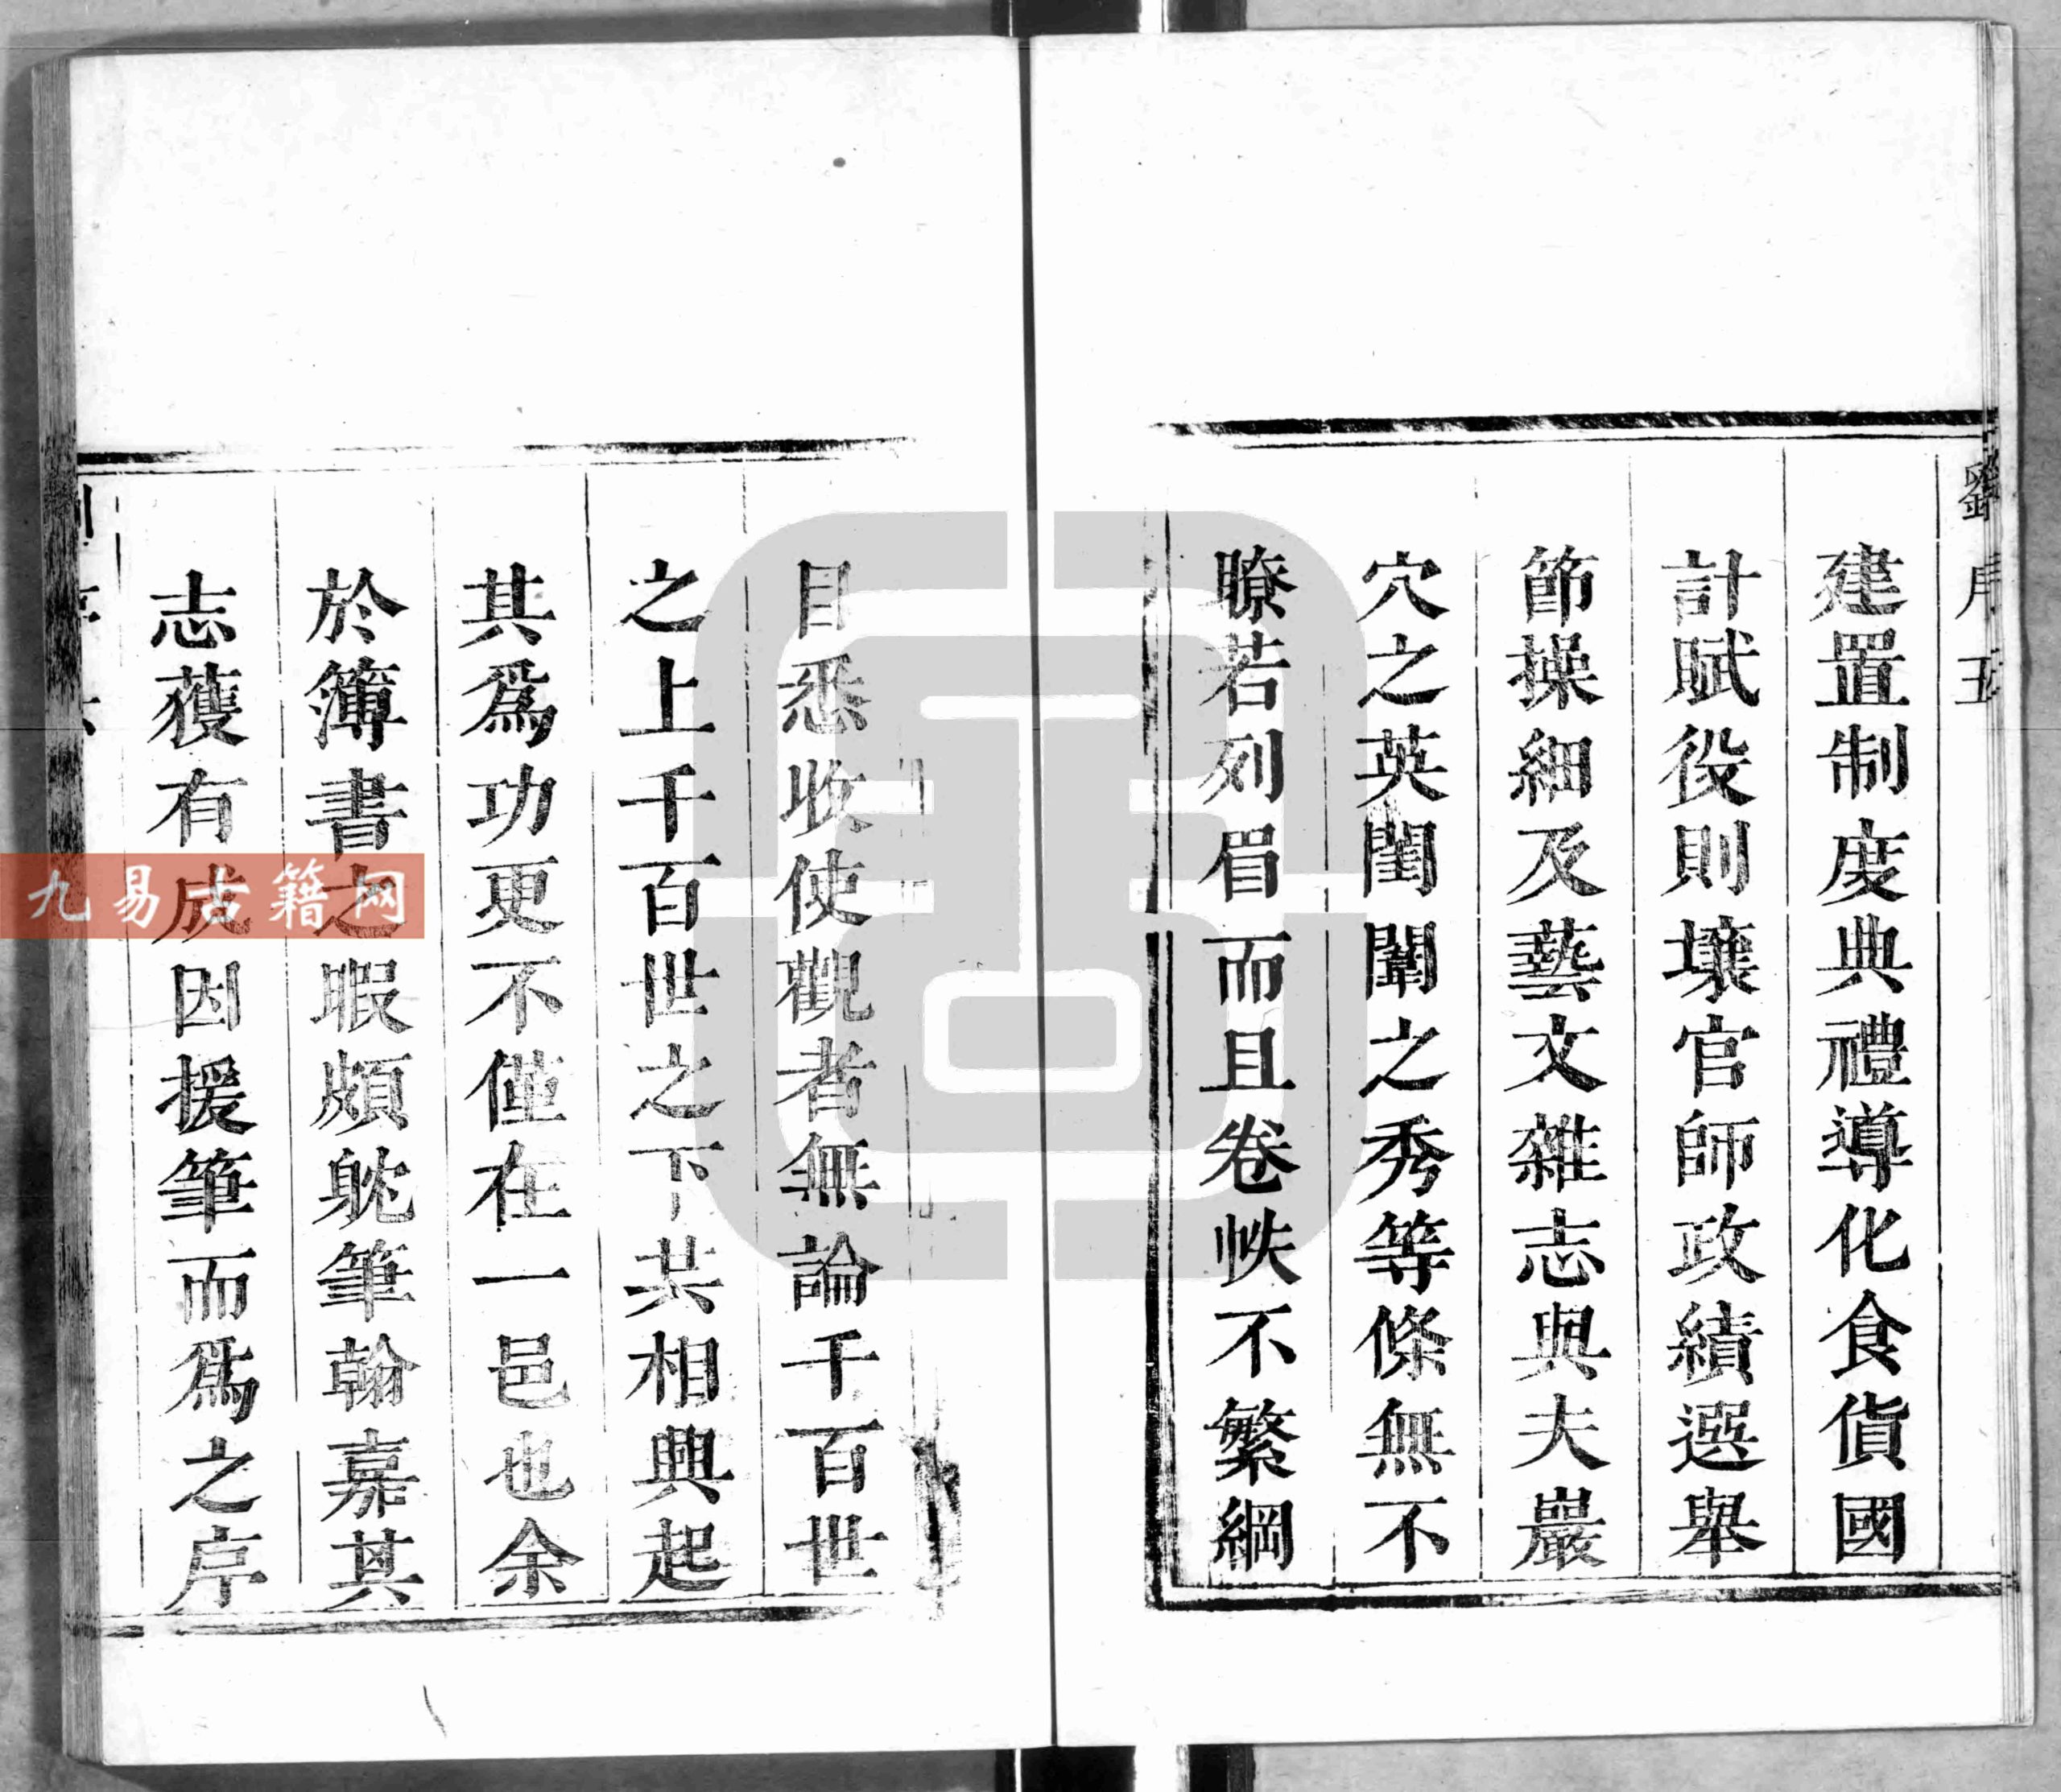 劉序 五
建置制度典禮導化食貨國
計賦役則壤官師政績選舉
節操細及藝文雜志與夫巖
穴之英閨闈之秀等條無不
瞭若列眉而且卷帙不繁綱
目悉收使觀者無論千百世
之上千百世之下共相興起
其爲功更不僅在一邑也余
於簿書之暇頗躭筆翰嘉其
志獲有成因援筆而爲之序
九易古籍网